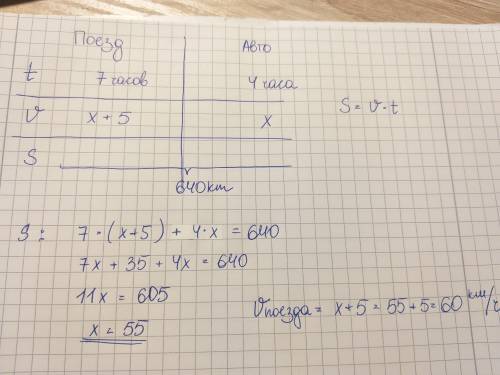 Поезд Авто
t 7 часов 4 часа
v x + 5 x
S = v · t
S
640 km
S: 7 · (x+5) + 4·x = 640
7x + 35 + 4x = 640
11x = 605
x = 55
Vпоезда = x+5 = 55+5=60 км/ч